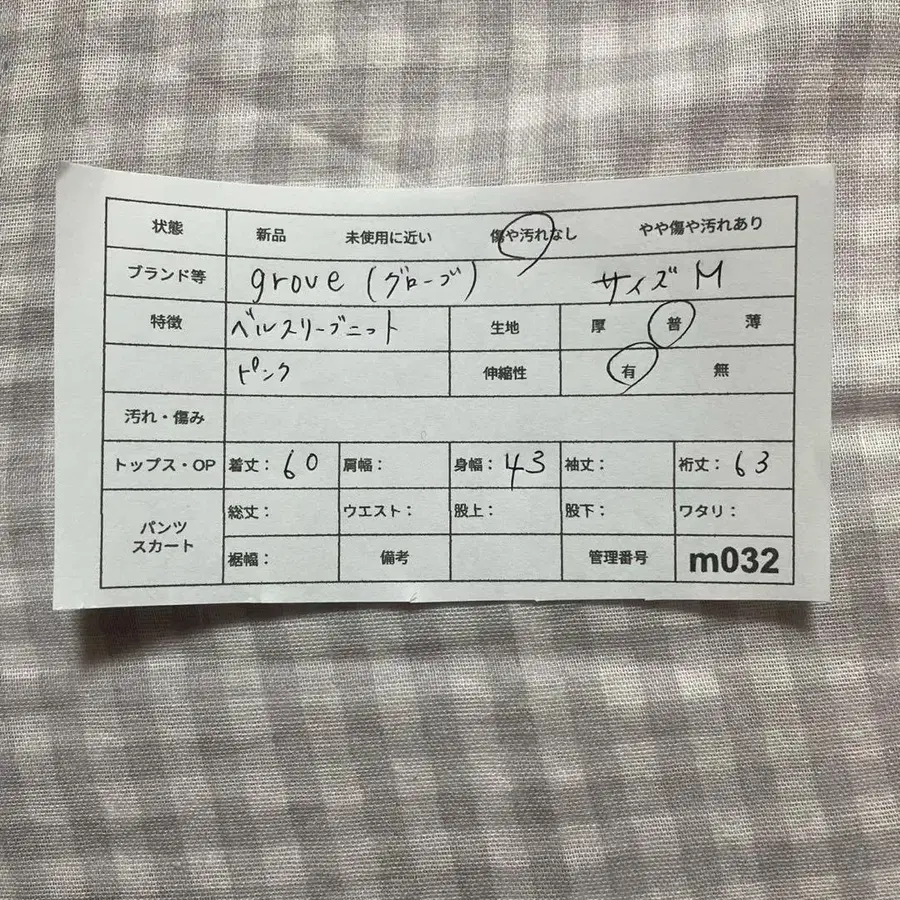 状態 新品 未使用に近い 傷や汚れなし やや傷や汚れあり
ブランド等 grove (グローブ) サイズ M
特徴 ベルスリーブニット 生地 厚 普 薄
ピンク 伸縮性 有 無
汚れ・傷み
トップス・OP 着丈: 60 肩幅: 身幅: 43 袖丈: 裄丈: 63
パンツ スカート 総丈: ウエスト: 股上: 股下: ワタリ:
裾幅: 備考 管理番号 m032